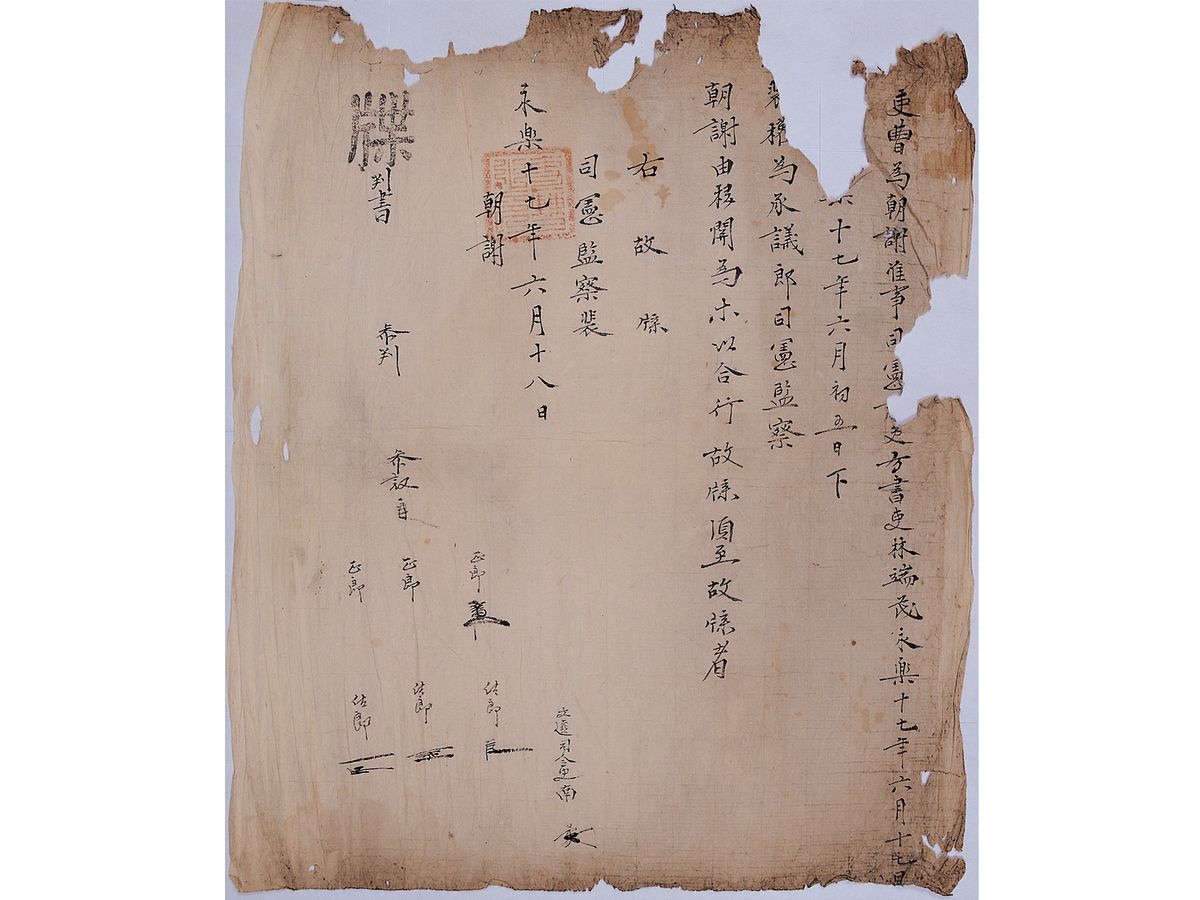 吏曹爲朝謝准事司憲吏房書吏林端茂永樂十七年六月十七日
十七年六月初五日下
裴權爲承議郎司憲監察
朝謝由移關爲等以合行故牒須至故牒者
右故牒
司憲監察裴
永樂十七年六月十八日
朝謝
牒
判書
叅判
叅議
正郎
正郎
正郎
佐郎
佐郎
佐郎
文選司令吏南